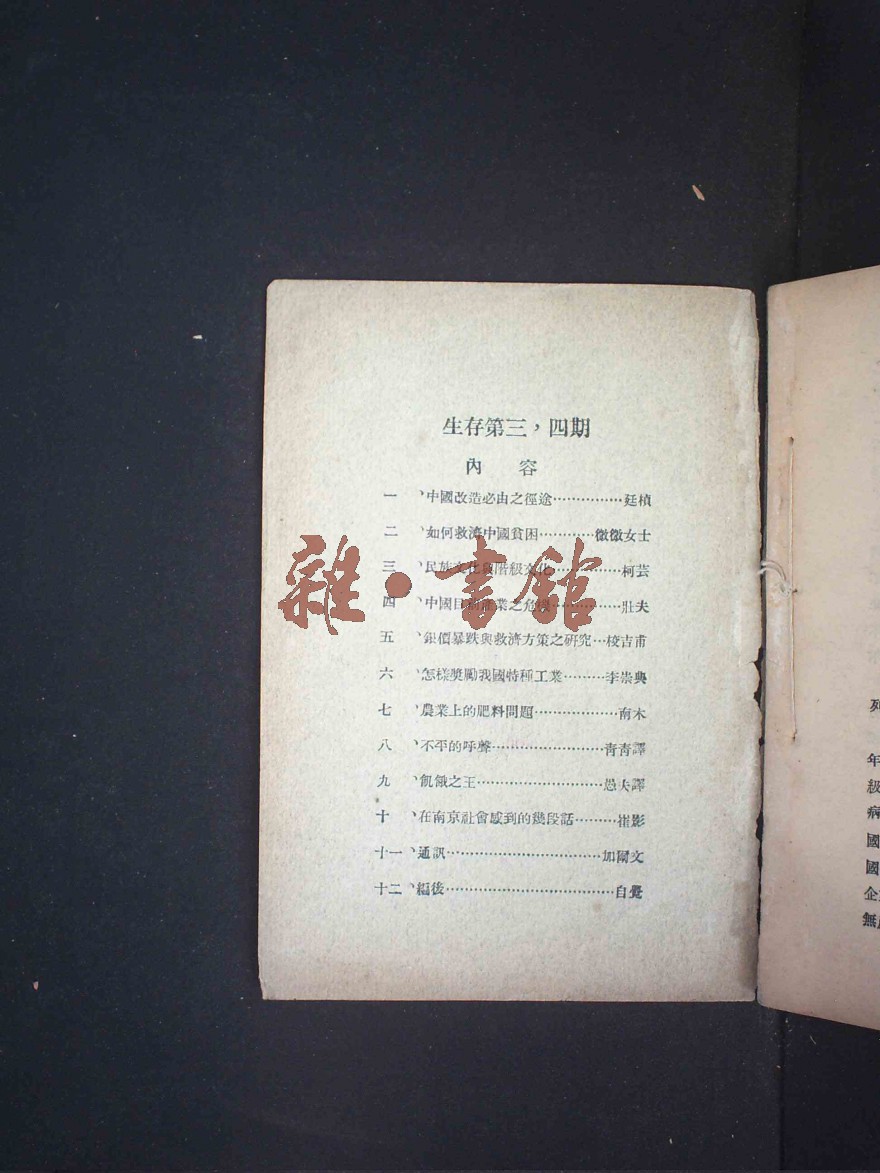 生存第三，四期
內 容
一、中國改造必由之徑途……………廷楨
二、如何救濟中國貧困…………微微女士
三、民族文化與階級文化……………柯芸
四、中國目前產業之危機……………壯夫
五、銀價暴跌與救濟方策之研究…梭吉甫
六、怎樣獎勵我國特種工業………李崇典
七、農業上的肥料問題………………南木
八、不平的呼聲……………………靑靑譯
九、飢餓之王………………………愚夫譯
十、在南京社會感到的幾段話………崔影
十一、通訊……………………………加爾文
十二、編後………………………………自覺
雜·書館
年
級
病
國
國
企
無